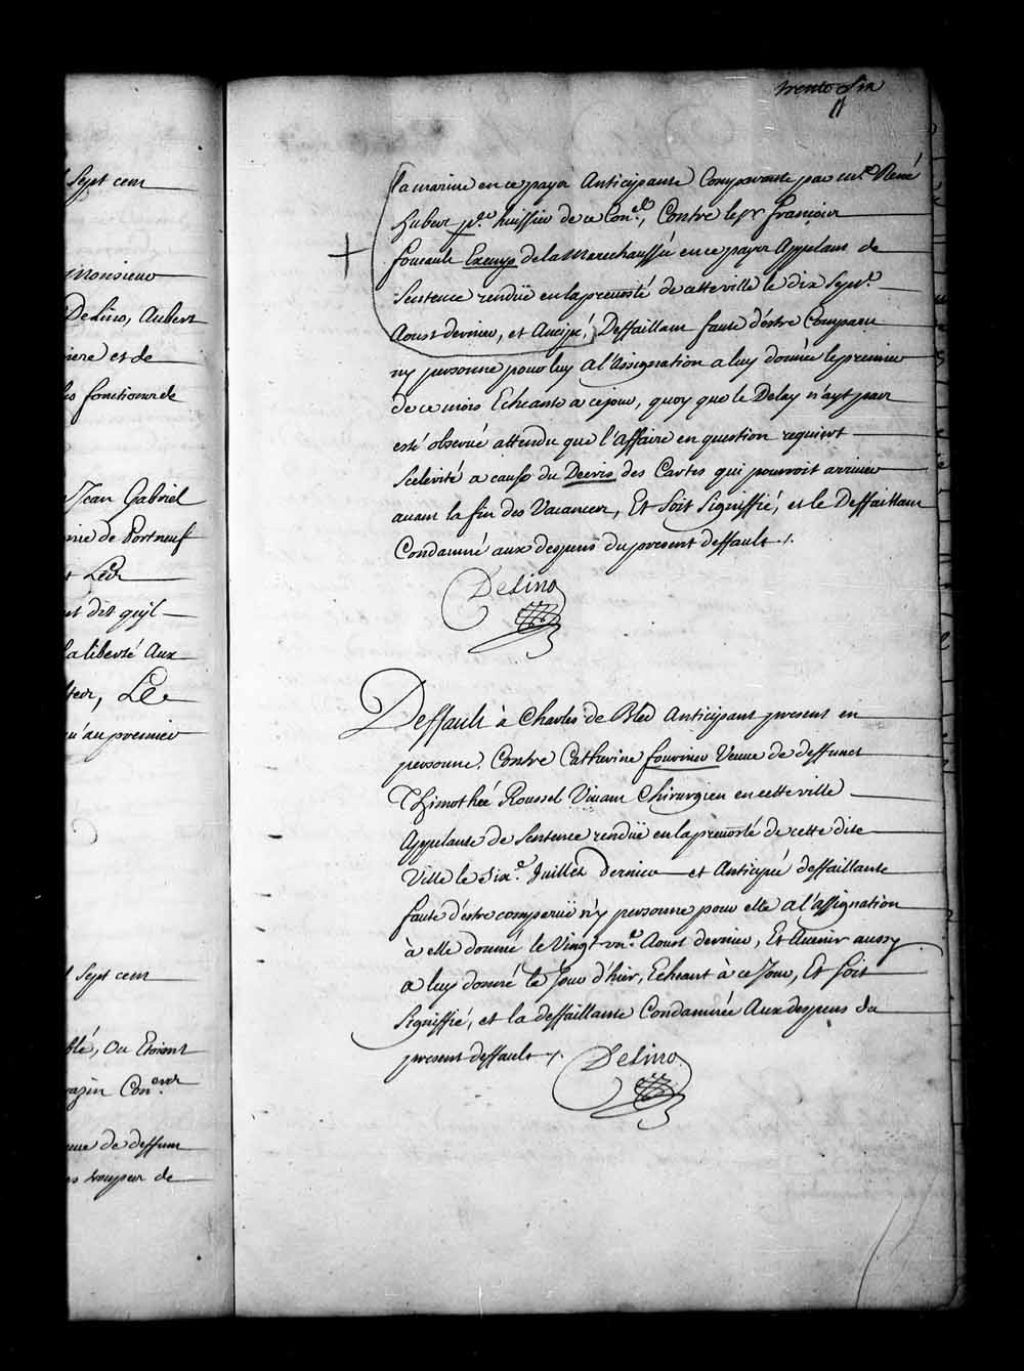 Sept cent
Monsieur
De Lino, Aubert
niere et de
fonctions de
Jean Gabriel
de Portneuf
Led.
dit qu'jl
la liberté aux
teur, Le
au premier
Sept cent
blé, ou Etoient
Con.ers
veuve de deffunt
troupes de
trente Six
la marine en ce payx Anticipante Comparante par me. René
Hubert p.er huissier de ce Con.el, Contre le Sr. françois
foucault Exempt de la Marechaussée en ce payx Appelant de
Sentence rendüe en la prevosté de cette ville le dix Sept.e
Aoust dernier, et Anticipé, Deffaillant faute d'estre Comparu
ny personne pour luy a l'Assignation a luy donnée le premier
de ce mois Echeante a ce jour, quoy que le Delay n'ayt pas
esté observé attendu que l'affaire en question requiert
Scelerité a cause du Decris des Cartes qui pourroit arriver
avant la fin des Vacances, Et Soit Signiffié, et le Deffaillant
Condamné aux despens du present deffault.
DeLino
Deffault à Charles de Bled Anticipant present en
personne. Contre Catherine fournier Veuve de deffunct
Thimotheé Roussel Vivant Chirurgien en cette ville
Appelante de Sentence rendüe en la prevosté de cette dite
Ville le Six.e Juillet Dernier et Anticipée deffaillante
faute d'estre comparüe n'y personne pour elle a l'assignation
à elle donné le Vingt un.e Aoust dernier, Et Avenir aussy
a luy donné le Jour d'hier, Echeant à ce Jour, Et Soit
Signiffié, et la deffaillante Condamnée Aux despens du
present deffault.
DeLino